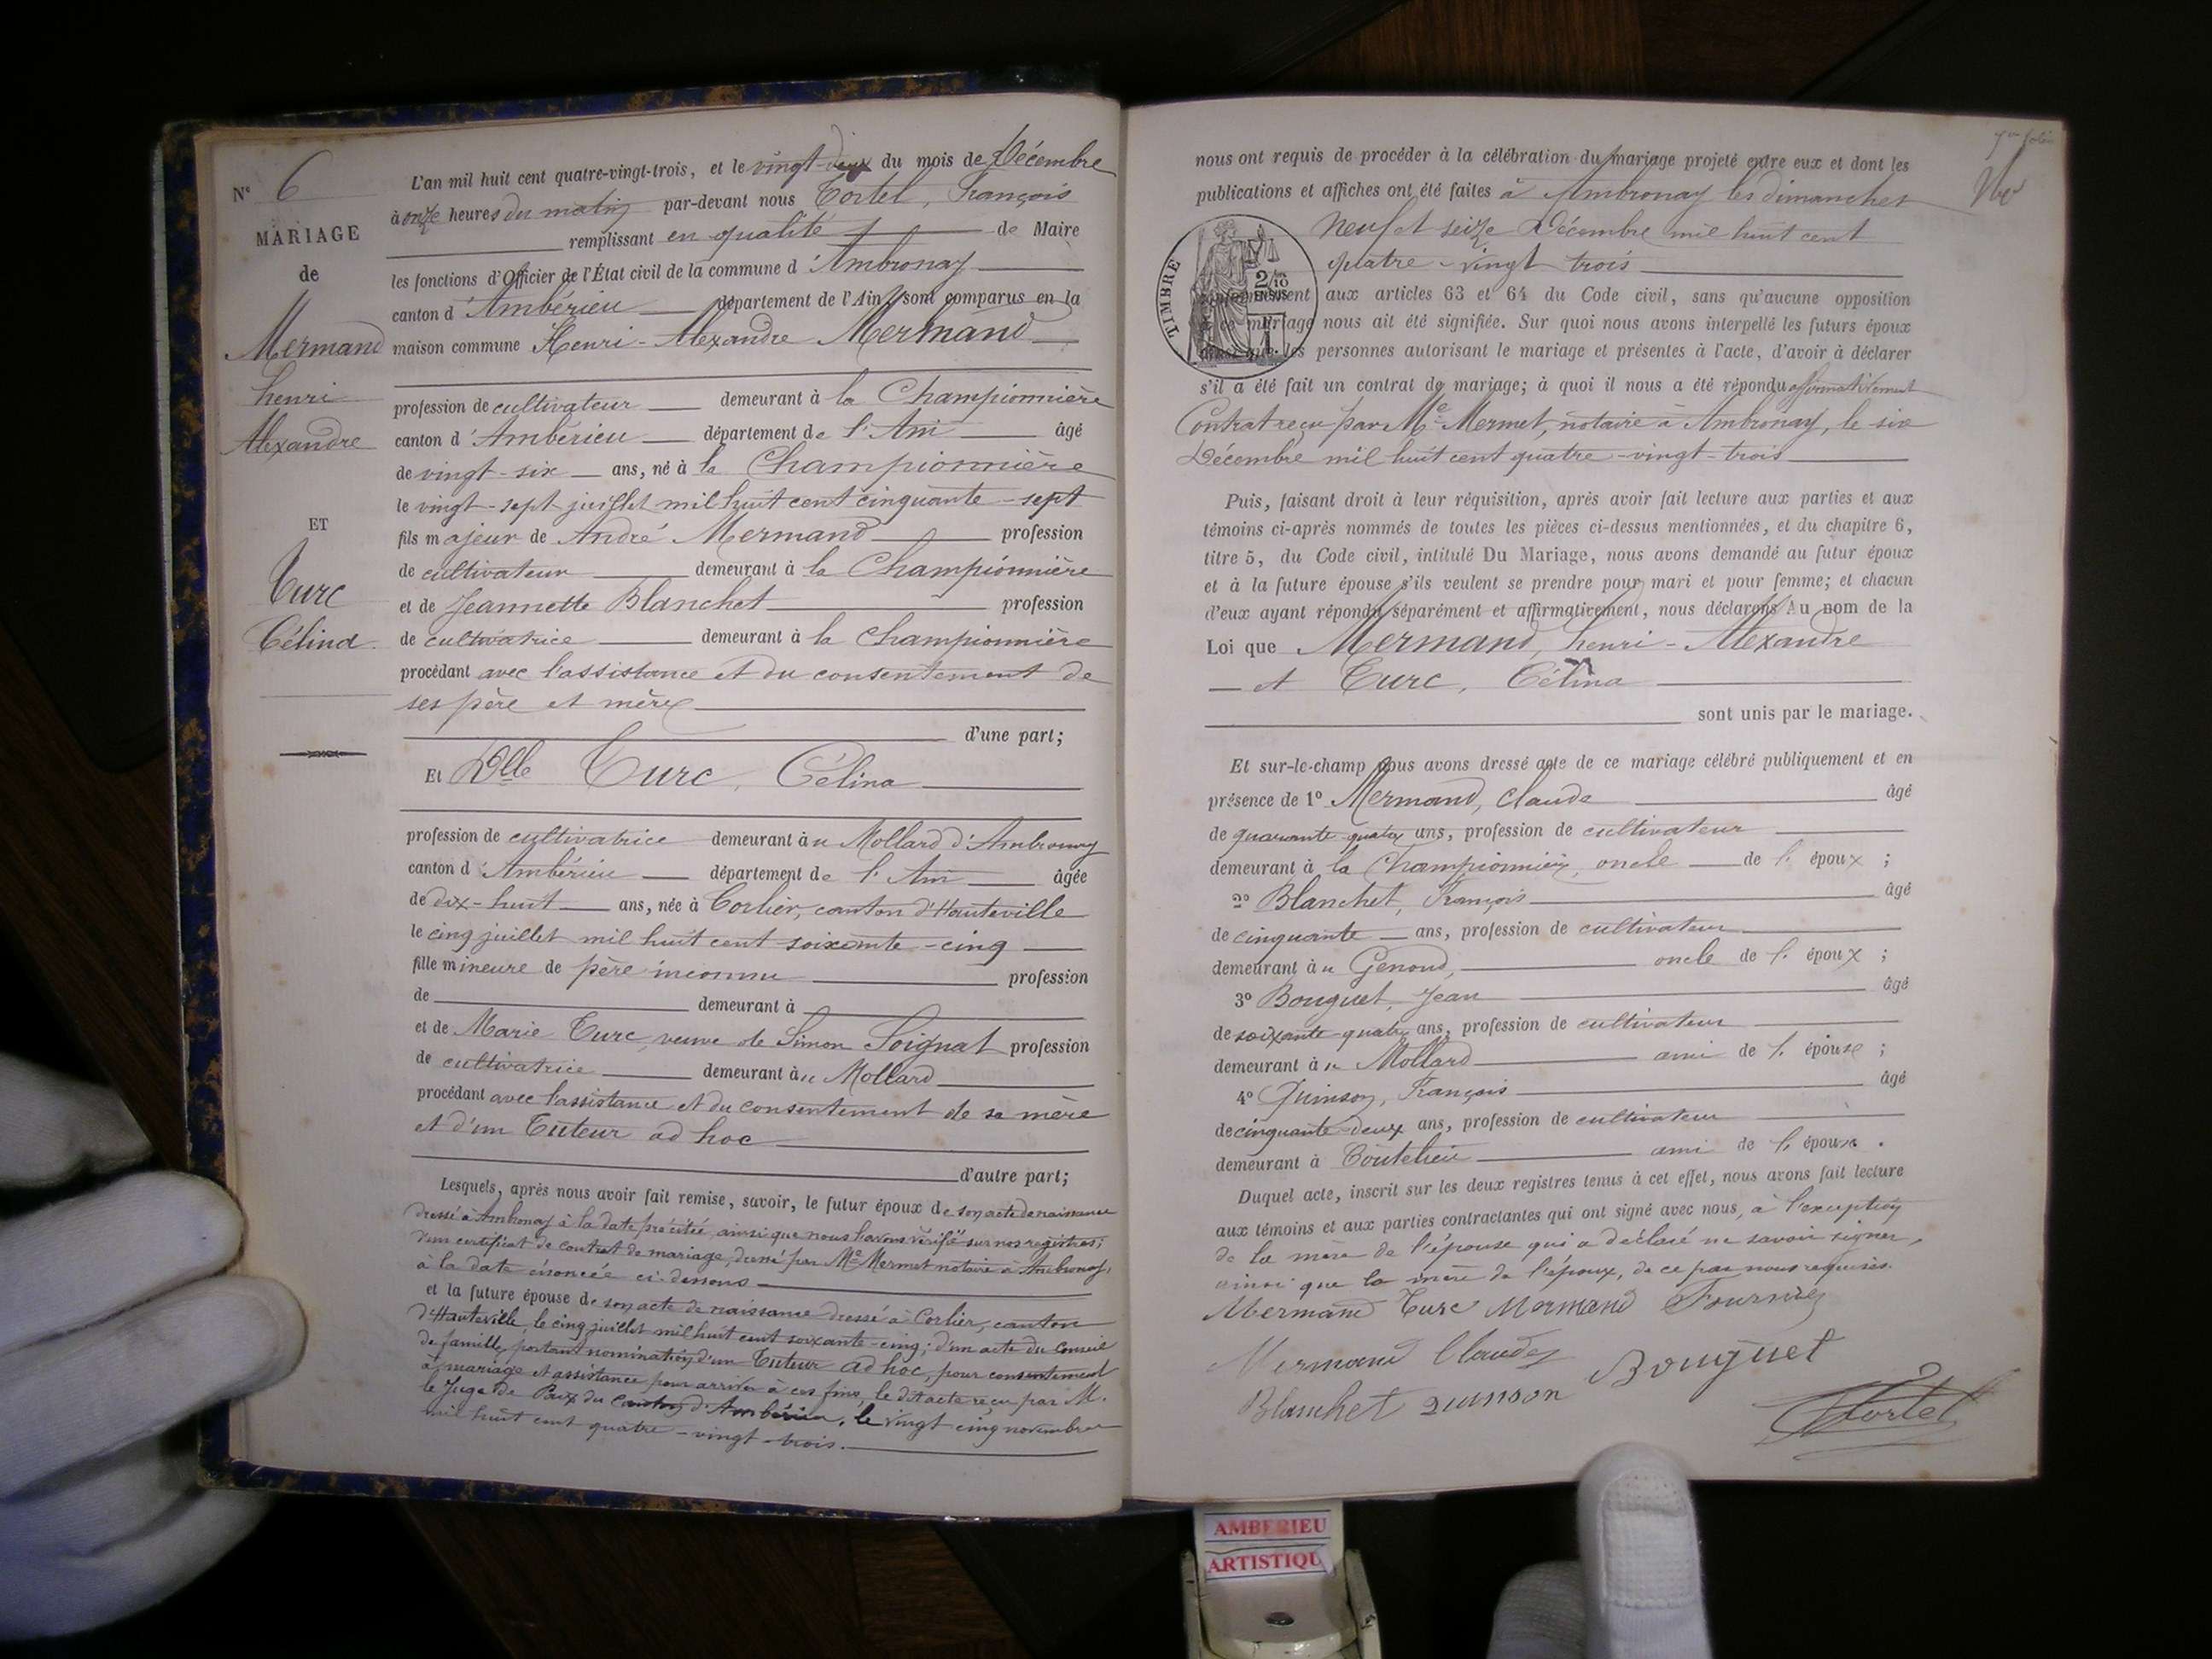 N° 6
MARIAGE
de
Mermand
henri
Alexandre
ET
Turc
Célina
L'an mil huit cent quatre-vingt-trois, et le vingt-deux du mois de Décembre
à onze heures du matin par-devant nous Tortel, François
remplissant en qualité de Maire
les fonctions d'Officier de l'État civil de la commune d'Ambronay
canton d'Ambérieu département de l'Ain, sont comparus en la
maison commune Henri-Alexandre Mermand
profession de cultivateur demeurant à la Championnière
canton d'Ambérieu département de l'Ain âgé
de vingt-six ans, né à la Championnière
le vingt-sept juillet mil huit cent cinquante-sept
fils majeur de André Mermand profession
de cultivateur demeurant à la Championnière
et de Jeannette Blanchet profession
de cultivatrice demeurant à la Championnière
procédant avec l'assistance et du consentement de
ses père et mère
d'une part;
Et Dlle Turc, Célina
profession de cultivatrice demeurant au Mollard d'Ambronay
canton d'Ambérieu département de l'Ain âgée
de dix-huit ans, née à Corlier, canton d'Hauteville
le cinq juillet mil huit cent soixante-cinq
fille mineure de père inconnu profession
de demeurant à
et de Marie Turc, veuve de Simon Soignat profession
de cultivatrice demeurant au Mollard
procédant avec l'assistance et du consentement de sa mère
et d'un Tuteur ad hoc
d'autre part;
Lesquels, après nous avoir fait remise, savoir, le futur époux de son acte de naissance
dressé à Ambronay à la date précitée, ainsi que nous l'avons vérifié sur nos registres;
d'un certificat de contrat de mariage, dressé par Me Mermet notaire à Ambronay,
à la date énoncée ci-dessous
et la future épouse de son acte de naissance dressé à Corlier, canton
d'Hauteville, le cinq juillet mil huit cent soixante-cinq; d'un acte du Conseil
de famille, portant nomination d'un Tuteur ad hoc, pour consentement
à mariage et assistance pour arriver à ces fins, le dit acte reçu par M.
le Juge de Paix du Canton d'Ambérieu, le vingt cinq novembre
mil huit cent quatre-vingt-trois.
nous ont requis de procéder à la célébration du mariage projeté entre eux et dont les
publications et affiches ont été faites à Ambronay les dimanches
neuf et seize Décembre mil huit cent
quatre-vingt trois
TIMBRE
2/10 EN SUS
conformément aux articles 63 et 64 du Code civil, sans qu'aucune opposition
à ce mariage nous ait été signifiée. Sur quoi nous avons interpellé les futurs époux
ainsi que les personnes autorisant le mariage et présentes à l'acte, d'avoir à déclarer
s'il a été fait un contrat de mariage; à quoi il nous a été répondu affirmativement
Contrat reçu par Me Mermet, notaire à Ambronay, le six
Décembre mil huit cent quatre-vingt-trois
Puis, faisant droit à leur réquisition, après avoir fait lecture aux parties et aux
témoins ci-après nommés de toutes les pièces ci-dessus mentionnées, et du chapitre 6,
titre 5, du Code civil, intitulé Du Mariage, nous avons demandé au futur époux
et à la future épouse s'ils veulent se prendre pour mari et pour femme; et chacun
d'eux ayant répondu séparément et affirmativement, nous déclarons Au nom de la
Loi que Mermand, henri-Alexandre
et Turc, Célina
sont unis par le mariage.
Et sur-le-champ nous avons dressé acte de ce mariage célébré publiquement et en
présence de 1° Mermand, Claude âgé
de quarante-quatre ans, profession de cultivateur
demeurant à la Championnière, oncle de l'époux;
2° Blanchet, François âgé
de cinquante ans, profession de cultivateur
demeurant au Genoud, oncle de l'époux;
3° Bouguet, Jean âgé
de soixante-quatre ans, profession de cultivateur
demeurant au Mollard ami de l'épouse;
4° Quinson, François âgé
de cinquante-deux ans, profession de cultivateur
demeurant à Coutelieu ami de l'épouse.
Duquel acte, inscrit sur les deux registres tenus à cet effet, nous avons fait lecture
aux témoins et aux parties contractantes qui ont signé avec nous, à l'exception
de la mère de l'épouse qui a déclaré ne savoir signer,
ainsi que la mère de l'époux, de ce par nous requises.
Mermand Turc Mermand Fournier
Mermand Claude Bouguet
Blanchet quinson Tortel
AMBERIEU
ARTISTIQU